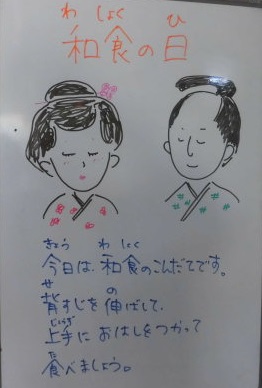 わ しょく ひ
和食の日
きょう わ しょく
今日は、和食のこんだてです。
せ の
背すじを伸ばして、
じょうず
上手に おはしをつかって
た
食べましょう。